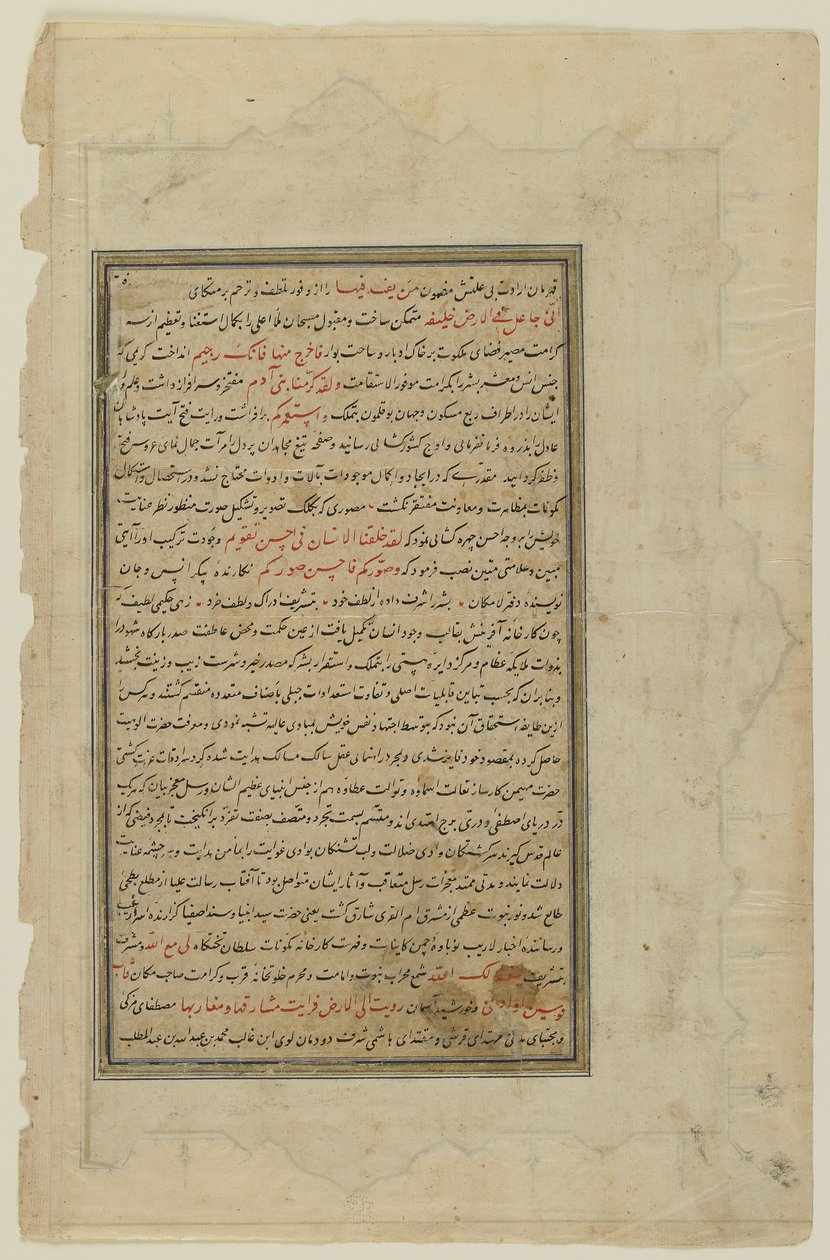 قهرمان ارادت بی علتش مضمون من یفسد فیها را از وفور تلطف و ترحم بر متکای
انی جاعل فی الارض خلیفه متمکن ساخت و مقبول مسبحان ملأ اعلی را بکمال استغنا و تعظیم از سه
کرامت مصیر فضای ملکوت بر خاک ادبار و ساحت بوار فاخرج منها فانک رجیم انداخت کریمی که
جنس انس و معشر بشر را بکرامت موفور الاستقامت ولقد کرمنا بنی آدم مفتخر و سرافراز داشت و علم
ایشان را در اطراف ربع مسکون و جهان بوقلمون بتملک واستعمرکم برافراشت و رایت فتح آیت پادشاهان
عادل را بذروه فرمانفرمائی و اوج کشورکشائی رسانید و صفحه تیغ مجاهدان پردل را مرآت جمال نمای عروس فتح
و ظفر گردانید مقدری که در ایجاد و اکمال موجودات بآلات و ادوات محتاج نشد و در استحصال و استکمال
مکونات بمظاهرت و معاونت مفتقر نگشت مصوری که بکلک تصویر و تشکیل صورت منظور نظر عنایت
خویش را بر وجه احسن چهره کشائی نمود که لقد خلقنا الانسان فی احسن تقویم و جودت ترکیب او را آیتی
مبین و علامتی متین نصب فرمود که وصورکم فاحسن صورکم نگارنده پیکر انس و جان
نویسنده دفتر لامکان بشر را شرف داده از لطف خود بتشریف ادراک و لطف خرد زهی حکیمی لطیف که
چون کارخانه آفرینش بقالب وجود انسان تکمیل یافت از عین حکمت و محض عاطفت صدر بارگاه شهود را
بذوات ملایکه عظام و مرکز دایره هستی را بتملک و استقرار بشر که مصدر خیر و شرست زیب و زینت بخشید
و بنا بر آن که بحسب تباین قابلیات اصلی و تفاوت استعدادات جبلی باصناف متعدده منقسم گشتند و هر کس را
ازین طایفه استحقاق آن نبود که بتوسط اجتهاد نفس خویش بمبادی عالیه تشبه نمودی و معرفت حضرت الوهیت
حاصل کرده بمقصود خود فایز شدی و بمجرد راهنمائی عقل سالک مسالک هدایت شده گرد سرادقات عزت گشتی
حضرت مهیمن کارساز تعالت اسماؤه و توالت عطاؤه هم از جنس انبیای عظیم الشان و رسل معجز بیان که هر یک
در دریای اصطفی و دری برج اهتدی اند و متسم بسمت تجرد و متصف بصفت تفرد برانگیخت تا بمجرد فیضی که از
عالم قدس گیرند سرگشتگان وادی ضلالت و لب تشنگان بوادی غوایت را بمأمن هدایت و سرچشمه عنایت
دلالت نمایند و مدتی ممتد معجزات رسل متعاقب و آثار ایشان متواصل بود تا آفتاب رسالت علیا از مطلع بطحی
طالع شد و نور نبوت عظمی از مشرق ام القری شارق گشت یعنی حضرت سید انبیا و سند اصفیا گزارنده اسرار غیب
و رساننده اخبار لاریب نوباوه چمن کاینات و فهرست کارخانه مکونات سلطان تختگاه لی مع الله و مشرف
بتشریف لیغفر لک الله شمع محراب نبوت و امامت و محرم خلوتخانه قرب و کرامت صاحب مکان قاب
قوسین او ادنی و خورشید آسمان رویت الی الارض فرایت مشارقها و مغاربها مصطفای مکی
و مجتبای مدنی قرشی هاشمی شرف دودمان لوی ابن غالب محمد بن عبدالله بن عبدالمطلب